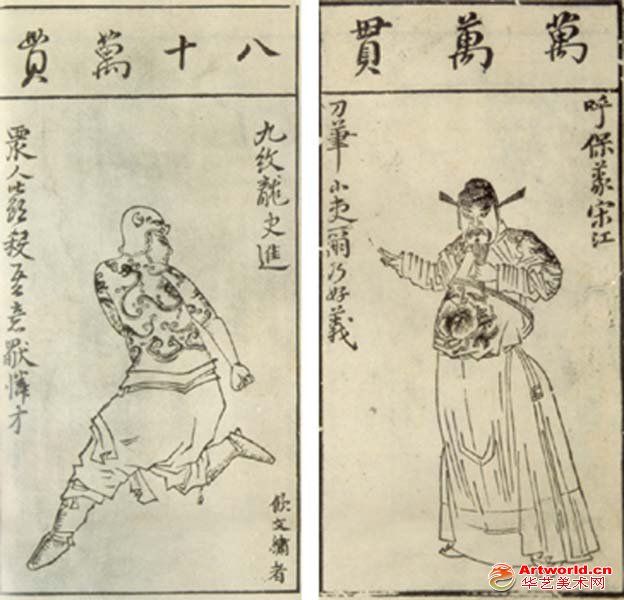 八十萬貫
九紋龍史進
衆人殺吾意獸憐才
文者
萬萬貫
呼保義宋江
刀筆小吏爾乃好義
Artworld.cn
华艺美术网